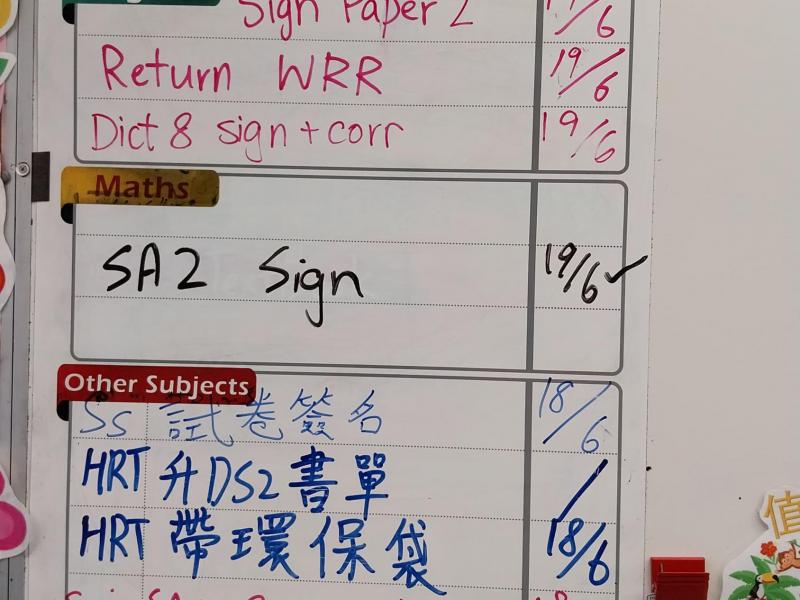 Sign Paper 2 19/6
Return WRR 19/6
Dict 8 sign + corr 19/6
Maths
SA2 Sign 19/6 ✓
Other Subjects
Ss 試卷簽名 18/6
HRT 升DS2書單 /
HRT 帶環保袋 18/6
值